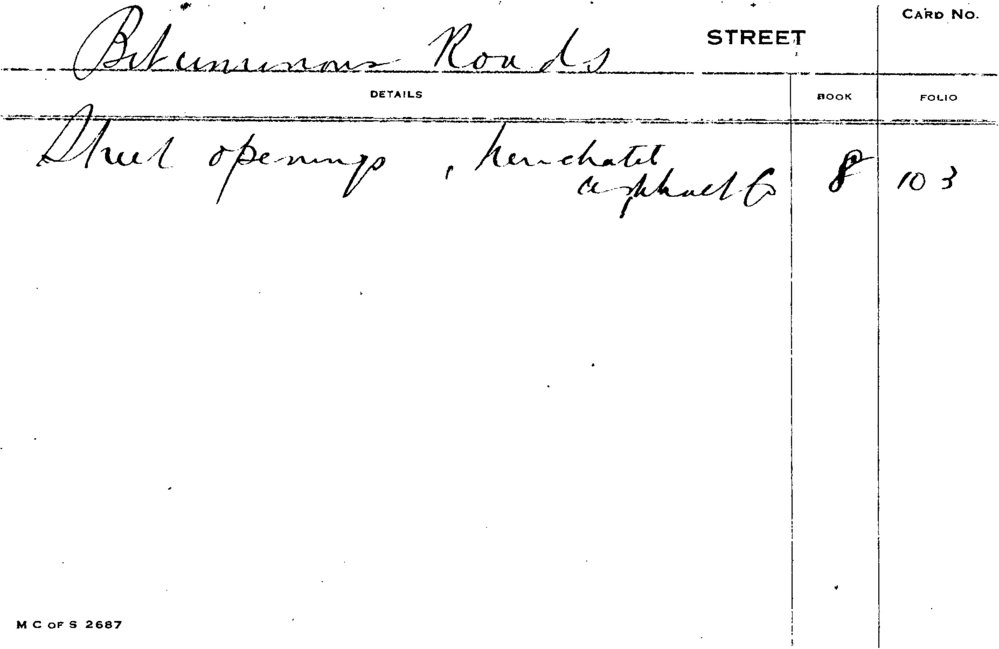 Bituminous Roads STREET CARD NO.
DETAILS BOOK FOLIO
Street openings, Neuchatel
asphalt Co 8 103
M C OF S 2687